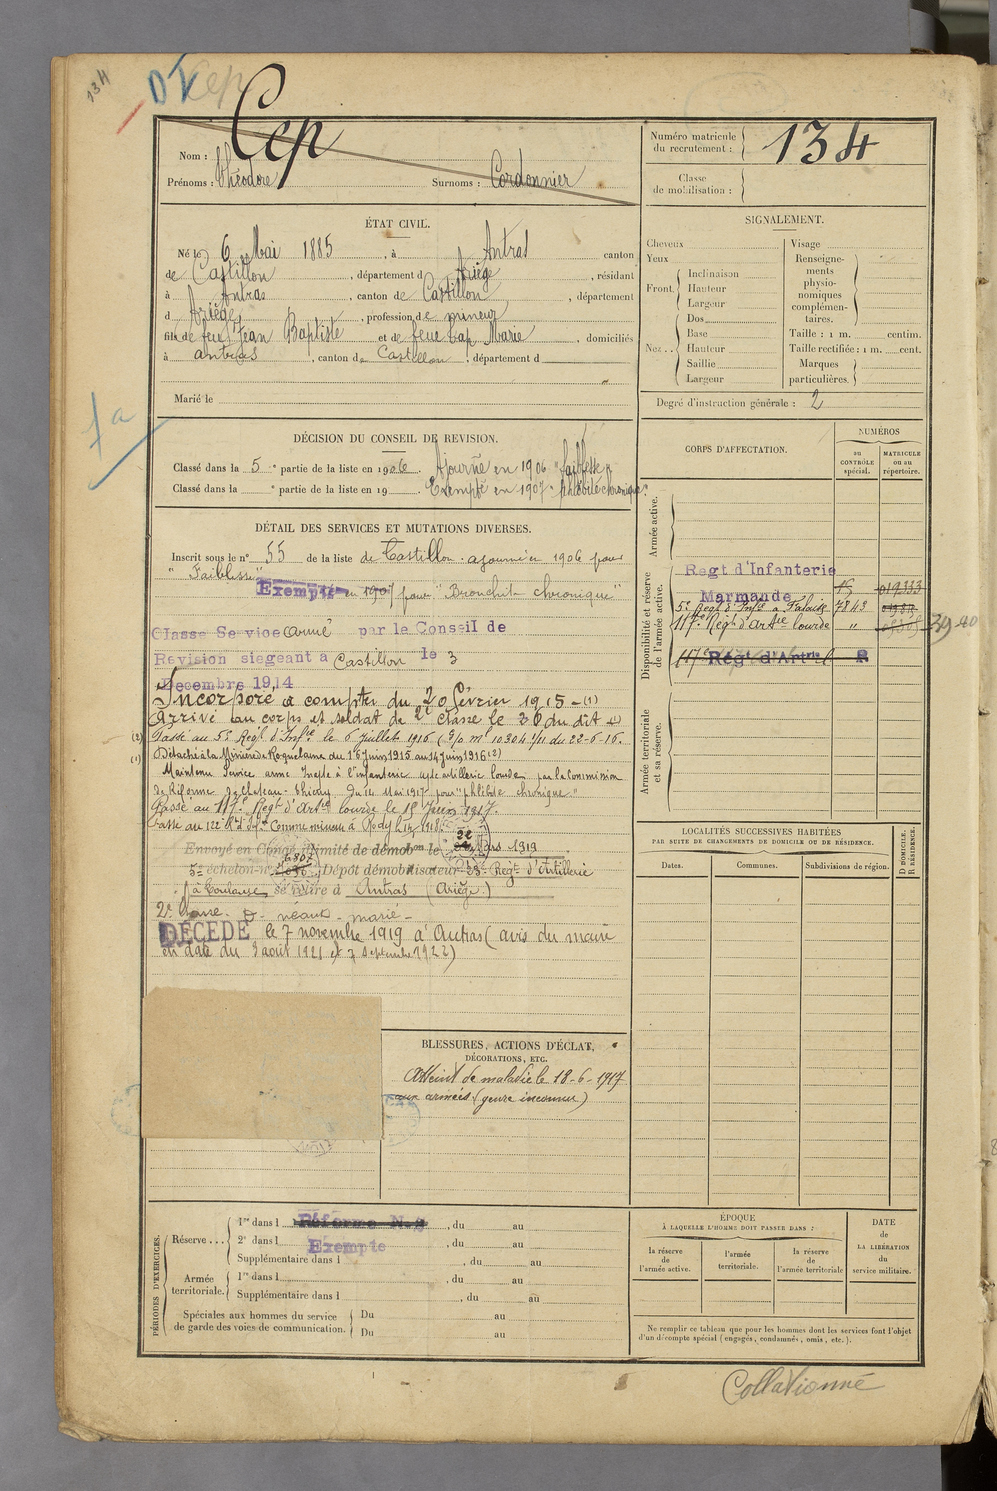 134
Cep
Nom : Cep
Prénoms : Théodore Surnoms : Cordonnier
Numéro matricule
du recrutement : 134
Classe
de mobilisation :
ÉTAT CIVIL.
Né le 6 Mai 1885, à Antras canton
de Castillon, département d Ariège, résidant
à Antras, canton de Castillon, département
d Ariège, profession de mineur
fils de feu Jean Baptiste et de feue Cap Marie, domiciliés
à antras, canton de Castillon, département d
Marié le
SIGNALEMENT.
Cheveux
Yeux
Front. Inclinaison
Hauteur
Largeur
Nez .. Dos
Base
Hauteur
Saillie
Largeur
Visage
Renseigne-
ments
physio-
nomiques
complémen-
taires.
Taille : 1 m. centim.
Taille rectifiée : 1 m. cent.
Marques
particulières.
Degré d'instruction générale : 2
1a
DÉCISION DU CONSEIL DE REVISION.
Classé dans la 5 e partie de la liste en 1906. Ajourné en 1906 "faiblesse"
Classé dans la e partie de la liste en 19 Exempté en 1907 "phlébite chronique"
DÉTAIL DES SERVICES ET MUTATIONS DIVERSES.
Inscrit sous le n° 55 de la liste de Castillon. ajourné en 1906 pour
"Faiblesse"
Exempté en 1907 pour "Bronchite chronique"
Classe Service armé par le Conseil de
Revision siegeant à Castillon le 3
Decembre 1914
Incorporé à compter du 20 février 1915 - (1)
Arrivé au corps et soldat de 2e classe le 26 du dit
(2) Passé au 5e Régt d'Infie le 6 juillet 1916 (D/o mle 10304 1/11 du 22-6-16.
(1) Détaché à la Minière de Roquelaure du 1er Juin 1915 au 14 Juin 1916 (2)
Maintenu Service armé Inapte à l'infanterie apte artillerie lourde par la Commission
de Réforme de Chateau-Thierry du 14 Mai 1917 pour "phlébite chronique"
Passé au 117e Régt d'Artie lourde le 15 Juin 1917.
Passé au 122e Rt d'Infie Comme mineur à Rodez
Envoyé en Congé illimité de démobon le 22 Mars 1919
5e échelon n° 6807 Dépôt démobilisateur 23e Régt d'Artillerie
à Toulouse se retire à Antras (Ariège)
2e Classe. D. néant - marié -
DÉCÉDÉ le 7 novembre 1919 à Antras (avis du maire
en date du 3 août 1921 et 7 septembre 1922)
CORPS D'AFFECTATION.
NUMÉROS
au
CONTRÔLE
spécial.
MATRICULE
ou au
répertoire.
Armée active.
Disponibilité et réserve
de l'armée active.
Regt d'Infanterie
Marmande 15 019333
5e Régt d'Infie à Falaise 7843
117e Régt d'Artie lourde "
117e Régt d'Artie l R
Armée territoriale
et sa réserve.
LOCALITÉS SUCCESSIVES HABITÉES
PAR SUITE DE CHANGEMENTS DE DOMICILE OU DE RÉSIDENCE.
Dates.
Communes.
Subdivisions de région.
D DOMICILE.
R RÉSIDENCE.
BLESSURES, ACTIONS D'ÉCLAT,
DÉCORATIONS, ETC.
Atteint de maladie le 18-6-1917
aux armées (genre inconnu)
PÉRIODES D'EXERCICES.
Réserve ... 1re dans l Réforme N° 2, du au
2e dans l Exempte, du au
Supplémentaire dans l, du au
Armée
territoriale. 1re dans l, du au
Supplémentaire dans l, du au
Spéciales aux hommes du service
de garde des voies de communication. Du au
Du au
ÉPOQUE
À LAQUELLE L'HOMME DOIT PASSER DANS :
la réserve
de
l'armée active.
l'armée
territoriale.
la réserve
de
l'armée territoriale
DATE
de
LA LIBÉRATION
du
service militaire.
Ne remplir ce tableau que pour les hommes dont les services font l'objet
d'un décompte spécial (engagés, condamnés, omis, etc.).
Collationné